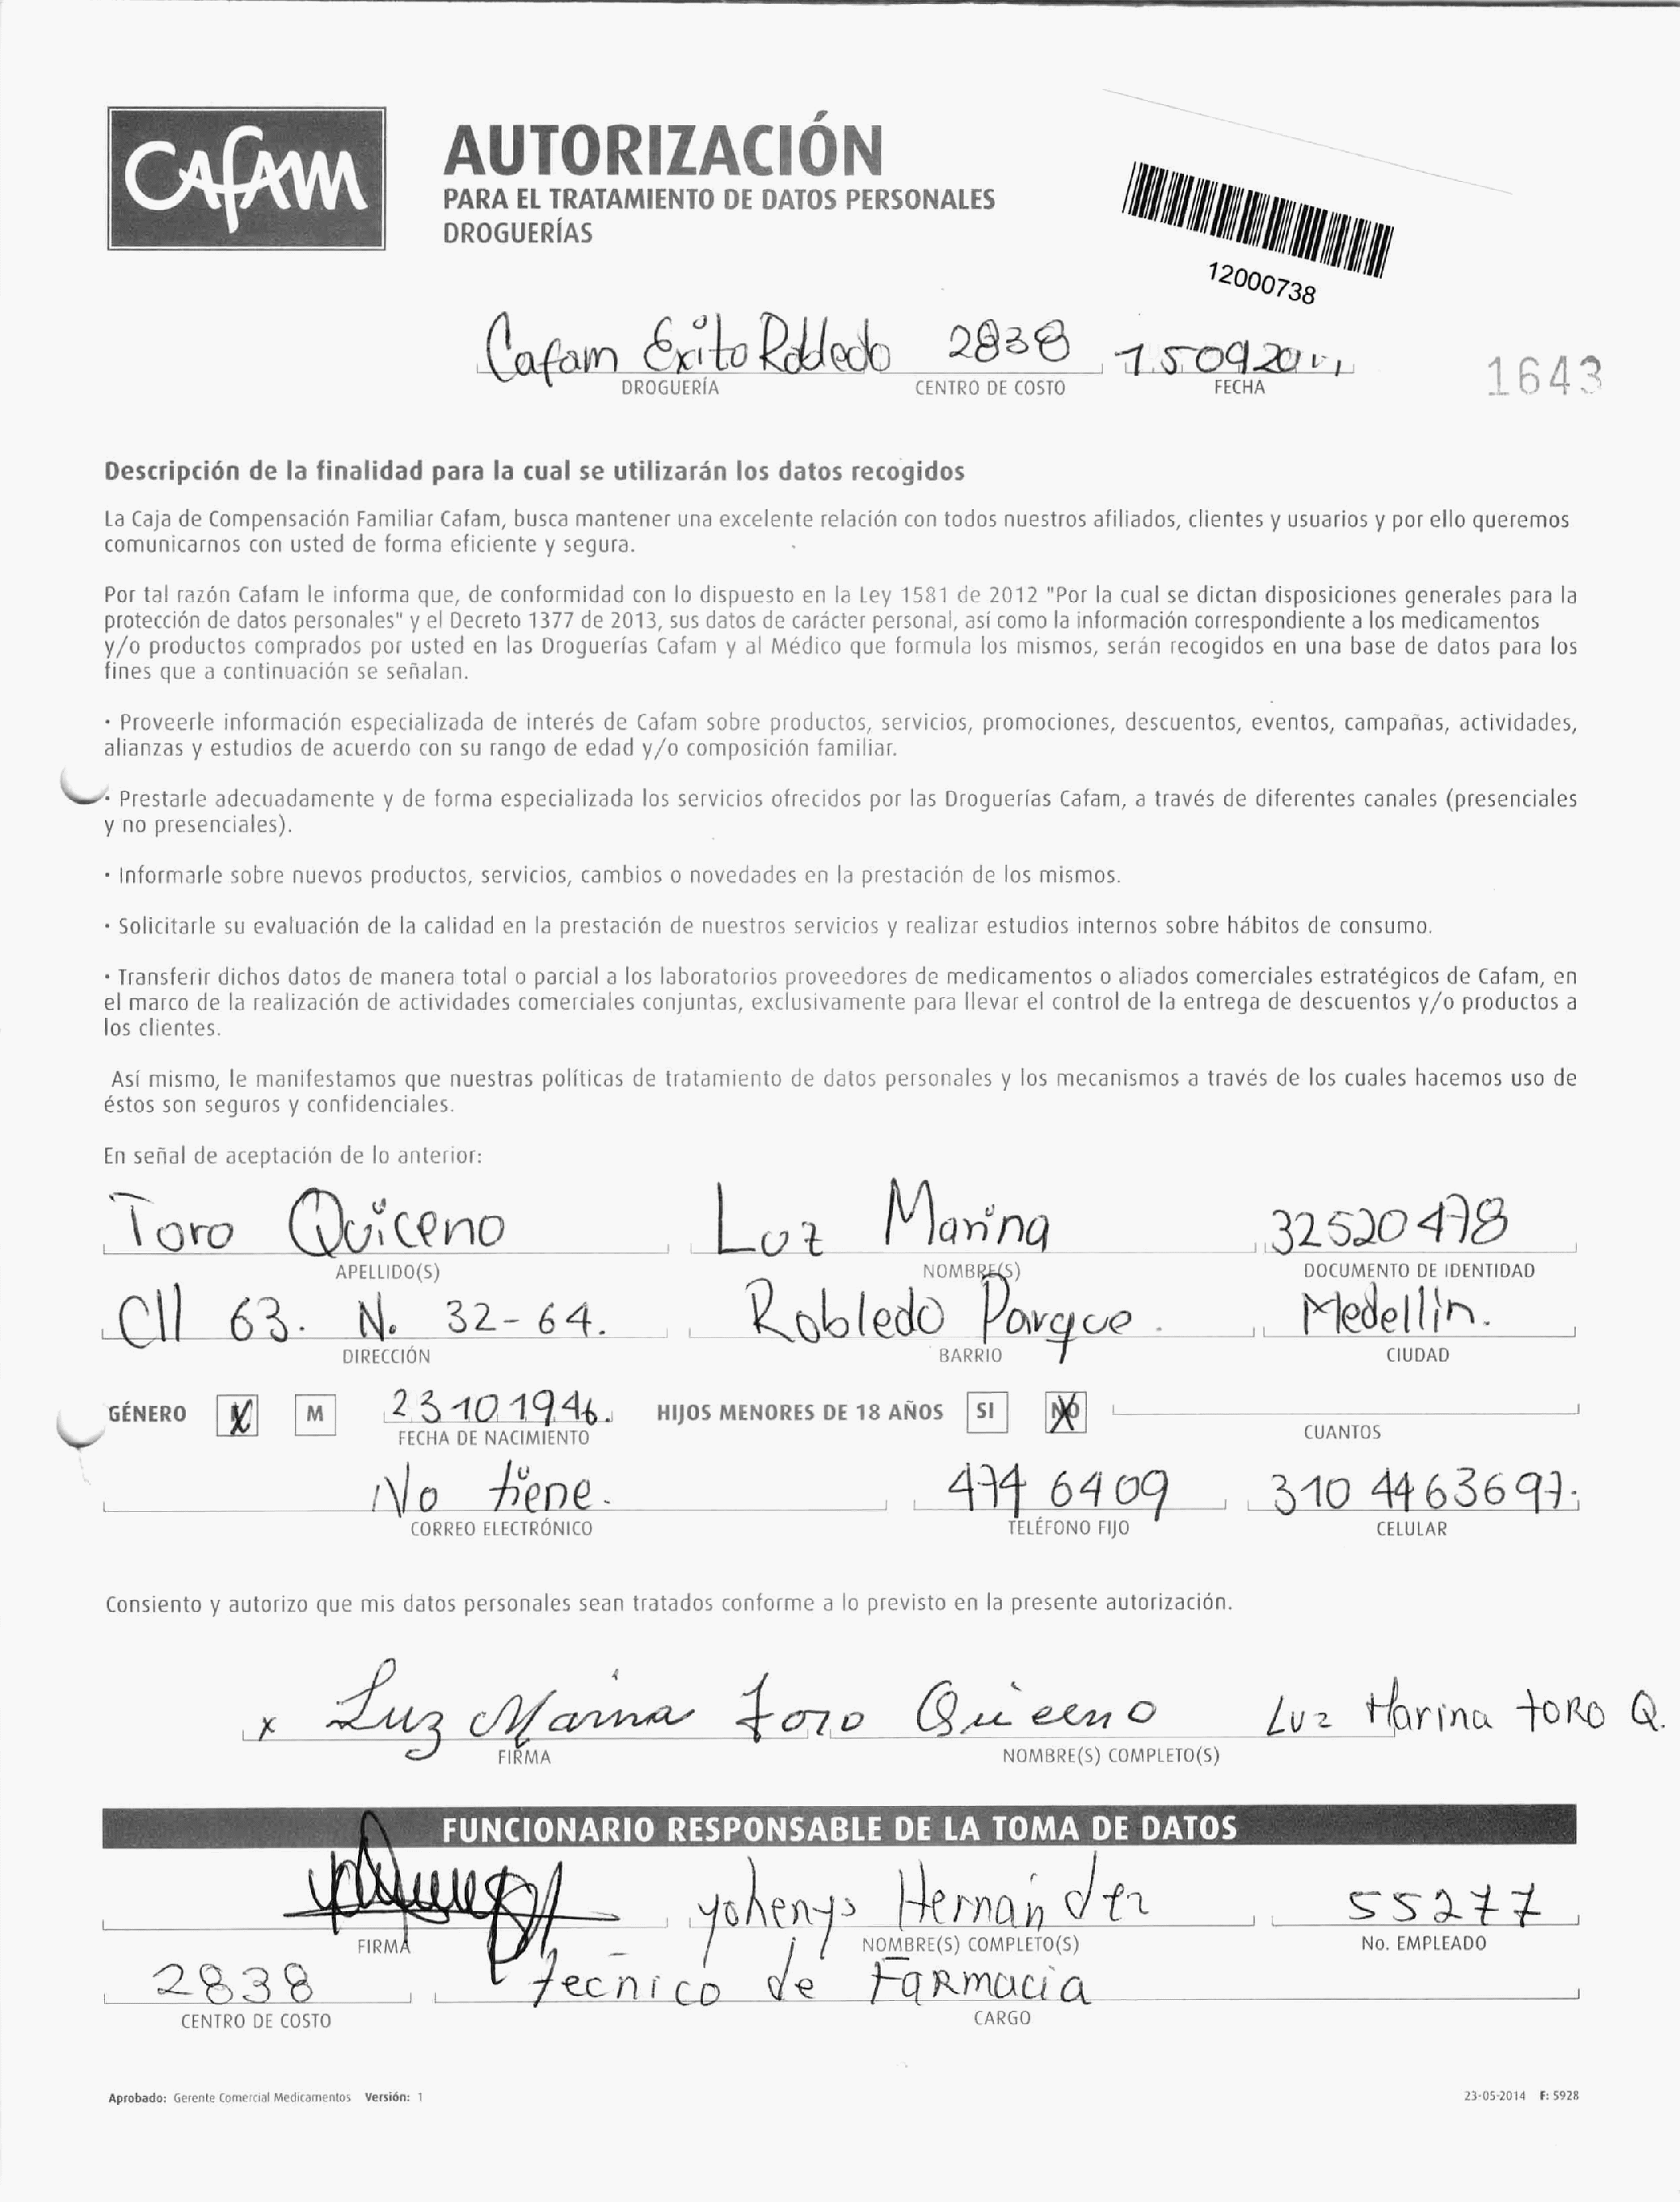 CAFAM
AUTORIZACIÓN
PARA EL TRATAMIENTO DE DATOS PERSONALES
DROGUERÍAS
12000738
Cafam Exito Robledo 2838
DROGUERÍA CENTRO DE COSTO FECHA
1643
Descripción de la finalidad para la cual se utilizarán los datos recogidos
La Caja de Compensación Familiar Cafam, busca mantener una excelente relación con todos nuestros afiliados, clientes y usuarios y por ello queremos
comunicarnos con usted de forma eficiente y segura.
Por tal razón Cafam le informa que, de conformidad con lo dispuesto en la Ley 1581 de 2012 "Por la cual se dictan disposiciones generales para la
protección de datos personales" y el Decreto 1377 de 2013, sus datos de carácter personal, así como la información correspondiente a los medicamentos
y/o productos comprados por usted en las Droguerías Cafam y al Médico que formula los mismos, serán recogidos en una base de datos para los
fines que a continuación se señalan.
· Proveerle información especializada de interés de Cafam sobre productos, servicios, promociones, descuentos, eventos, campañas, actividades,
alianzas y estudios de acuerdo con su rango de edad y/o composición familiar.
· Prestarle adecuadamente y de forma especializada los servicios ofrecidos por las Droguerías Cafam, a través de diferentes canales (presenciales
y no presenciales).
· Informarle sobre nuevos productos, servicios, cambios o novedades en la prestación de los mismos.
· Solicitarle su evaluación de la calidad en la prestación de nuestros servicios y realizar estudios internos sobre hábitos de consumo.
· Transferir dichos datos de manera total o parcial a los laboratorios proveedores de medicamentos o aliados comerciales estratégicos de Cafam, en
el marco de la realización de actividades comerciales conjuntas, exclusivamente para llevar el control de la entrega de descuentos y/o productos a
los clientes.
Así mismo, le manifestamos que nuestras políticas de tratamiento de datos personales y los mecanismos a través de los cuales hacemos uso de
éstos son seguros y confidenciales.
En señal de aceptación de lo anterior:
Toro Quiceno Luz Marina 32520478
APELLIDO(S) NOMBRE(S) DOCUMENTO DE IDENTIDAD
Cll 63. N. 32-64. Robledo Parque. Medellin.
DIRECCIÓN BARRIO CIUDAD
GÉNERO M 23101946. HIJOS MENORES DE 18 AÑOS SI NO
FECHA DE NACIMIENTO CUANTOS
No tiene. 474 6409 310 4463697.
CORREO ELECTRÓNICO TELÉFONO FIJO CELULAR
Consiento y autorizo que mis datos personales sean tratados conforme a lo previsto en la presente autorización.
x Luz Marina Toro Quiceno Luz Marina TORO Q.
FIRMA NOMBRE(S) COMPLETO(S)
FUNCIONARIO RESPONSABLE DE LA TOMA DE DATOS
yohenys Hernández 55277
FIRMA NOMBRE(S) COMPLETO(S) No. EMPLEADO
2838 tecnico de Farmacia
CENTRO DE COSTO CARGO
Aprobado: Gerente Comercial Medicamentos Versión: 1 23-05-2014 F: 5928